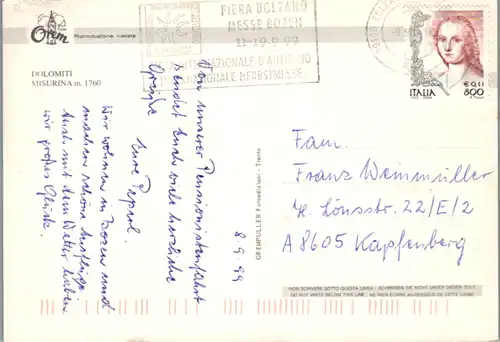 Orem Riproduzione vietata
DOLOMITI
MISURINA m. 1760
FIERA BOLZANO
MESSE BOZEN
11-19.9.99
NAZIONALE D'AUTUNNO
INTERNATIONALE HERBSTMESSE
€ 0,41
ITALIA 800
8.9.99
Von unserer Pensionistenfahrt
sendet Euch viele herzliche
Grüße
Eure Peperl.
Wir wohnen in Bozen und
machen schöne Ausflüge
Auch mit dem Wetter haben
wir großes Glück.
GHEMPULLER Fotoedizioni - Trento
Fam.
Franz Weinmüller
H. Lönsstr. 22/E/2
A 8605 Kapfenberg
NON SCRIVERE SOTTO QUESTA LINEA - SCHREIBEN SIE NICHT UNTER DIESER ZEILE
DO NOT WRITE BELOW THIS LINE - NE RIEN ECRIRE AU-DESSOUS DE CETTE LIGNE